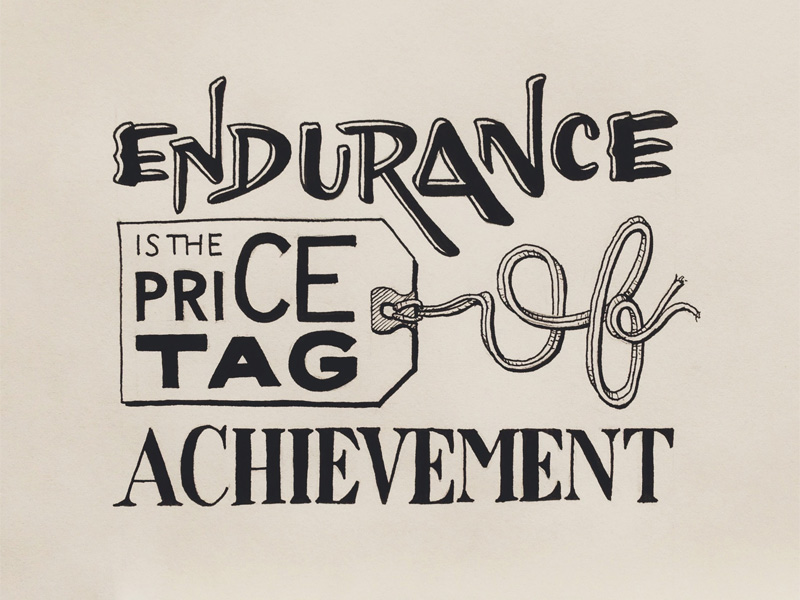 ENDURANCE
IS THE
PRICE
TAG
Of
ACHIEVEMENT